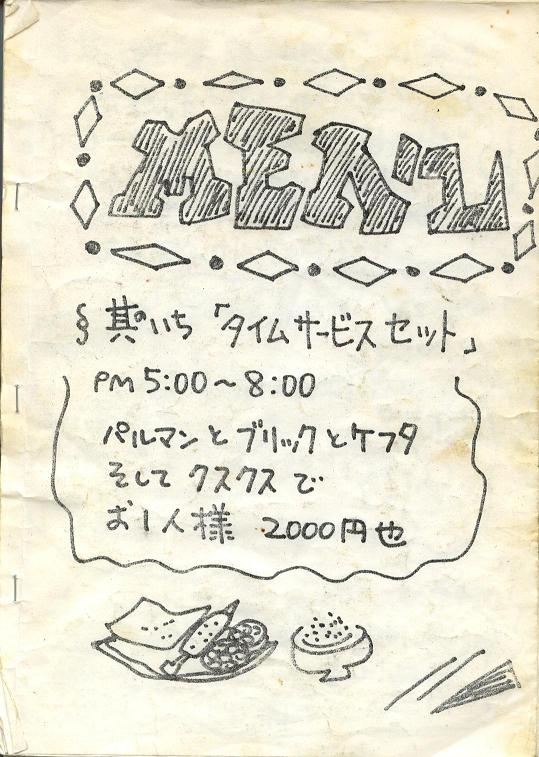 MENU
§ 其のいち「タイムサービスセット」
PM 5:00～8:00
パルマンとブリックとケフタ
そして クスクス で
お1人様 2000円也